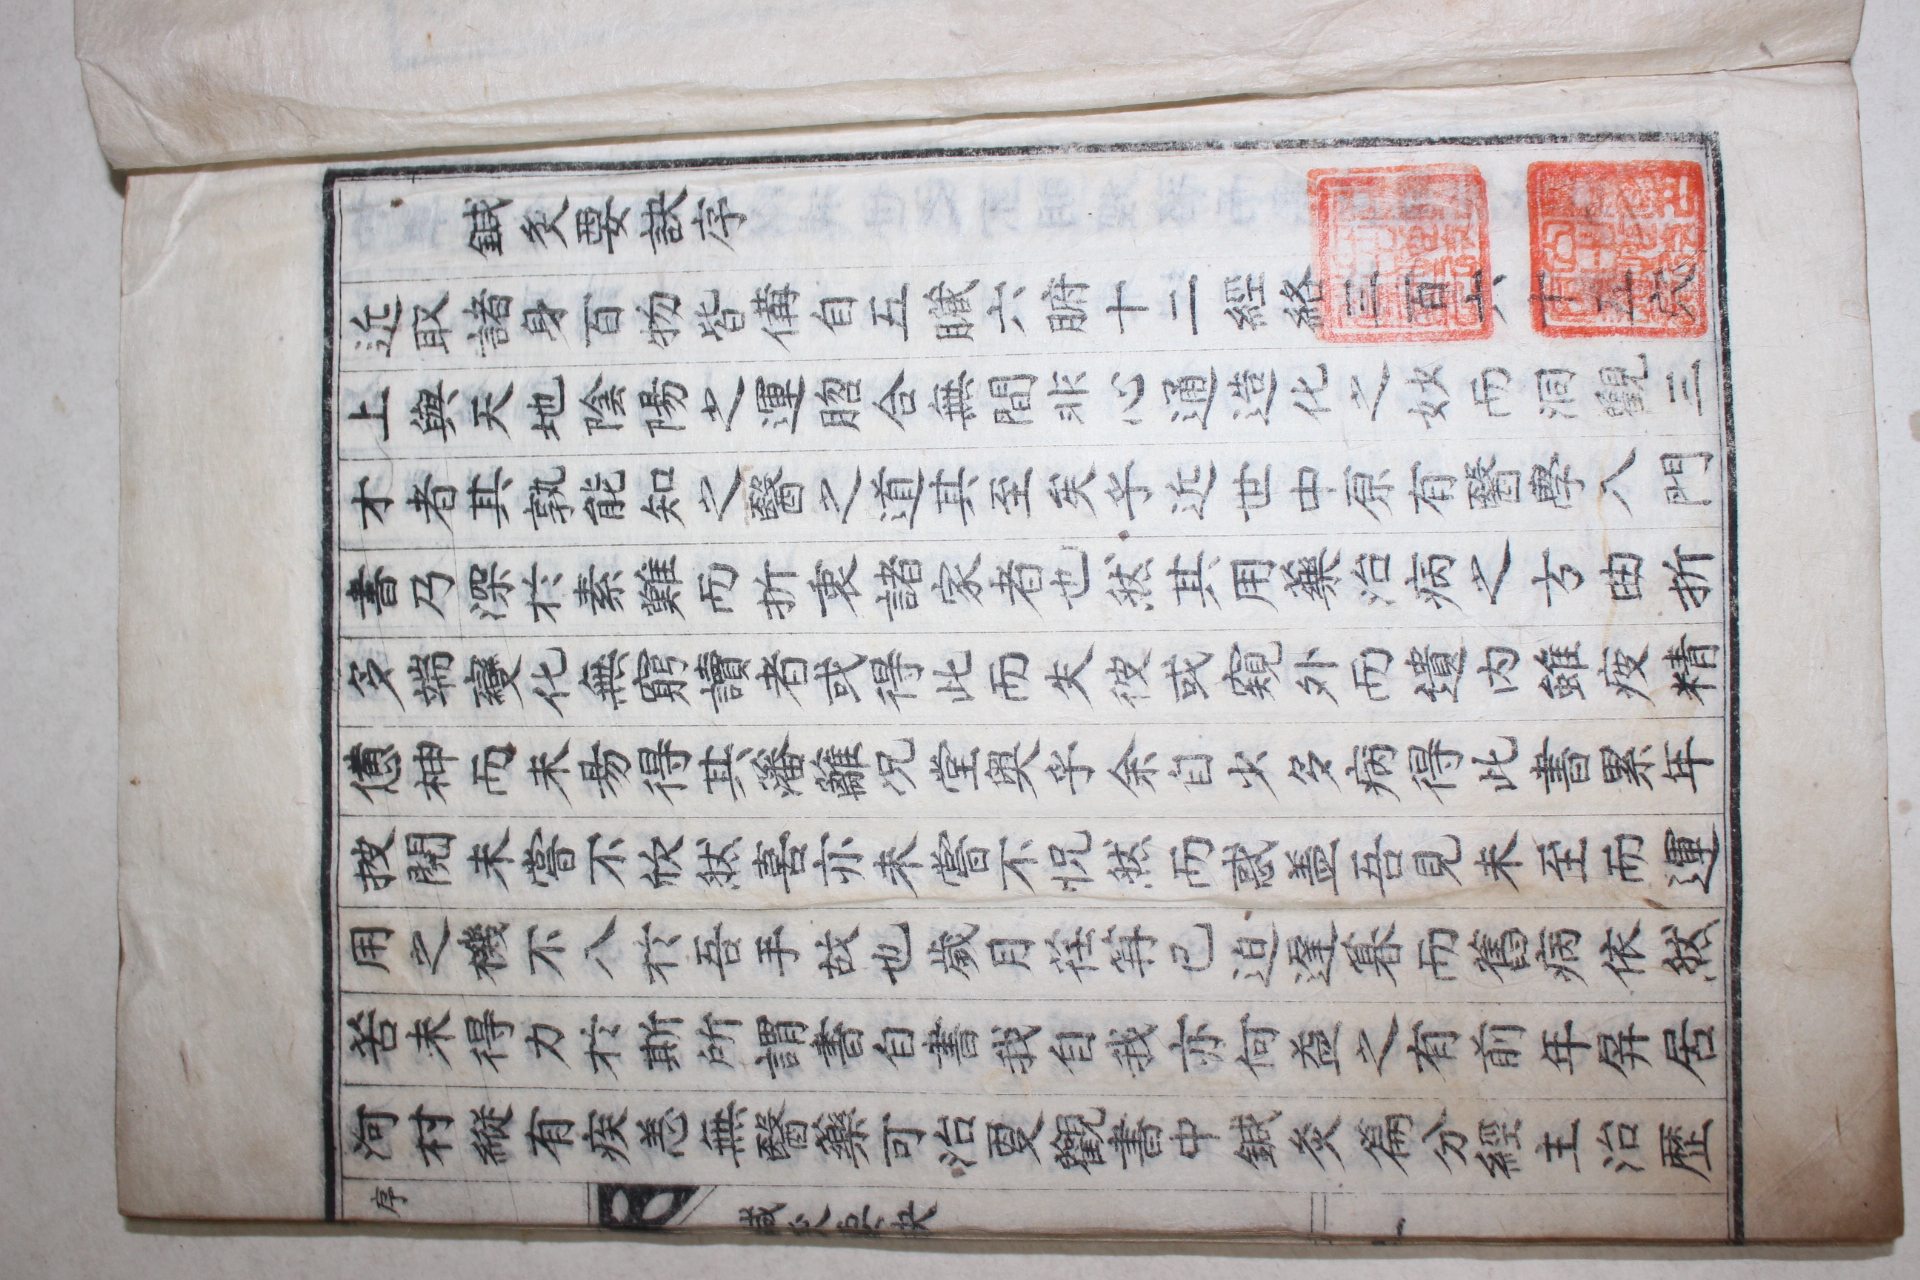 鍼灸要訣序
近取諸身百物皆備自五臟六腑十二經絡三百六十五穴
上與天地陰陽之運脗合無間非心通造化之妙而洞觀三
才者其孰能知之醫之道其至矣乎近世中原有醫學八門
書乃深於素難而折衷諸家者也然其用藥治病之方曲折
多端變化無窮讀者或得此而失彼或窺外而遺內雖疲精
憊神而未易得其藩籬况堂奧乎余自少多病得此書累年
披閱未嘗不欣然喜亦未嘗不怳然而惑盖吾見未至而運
用之機不入於吾手故也歲月荏苒已迫遲暮而舊病依然
苦未得力於斯所謂書自書我自我亦何益之有前年屏居
河村縱有疾恙無醫藥可治更觀書中鍼灸篇分經主治歷
序
鍼灸要訣